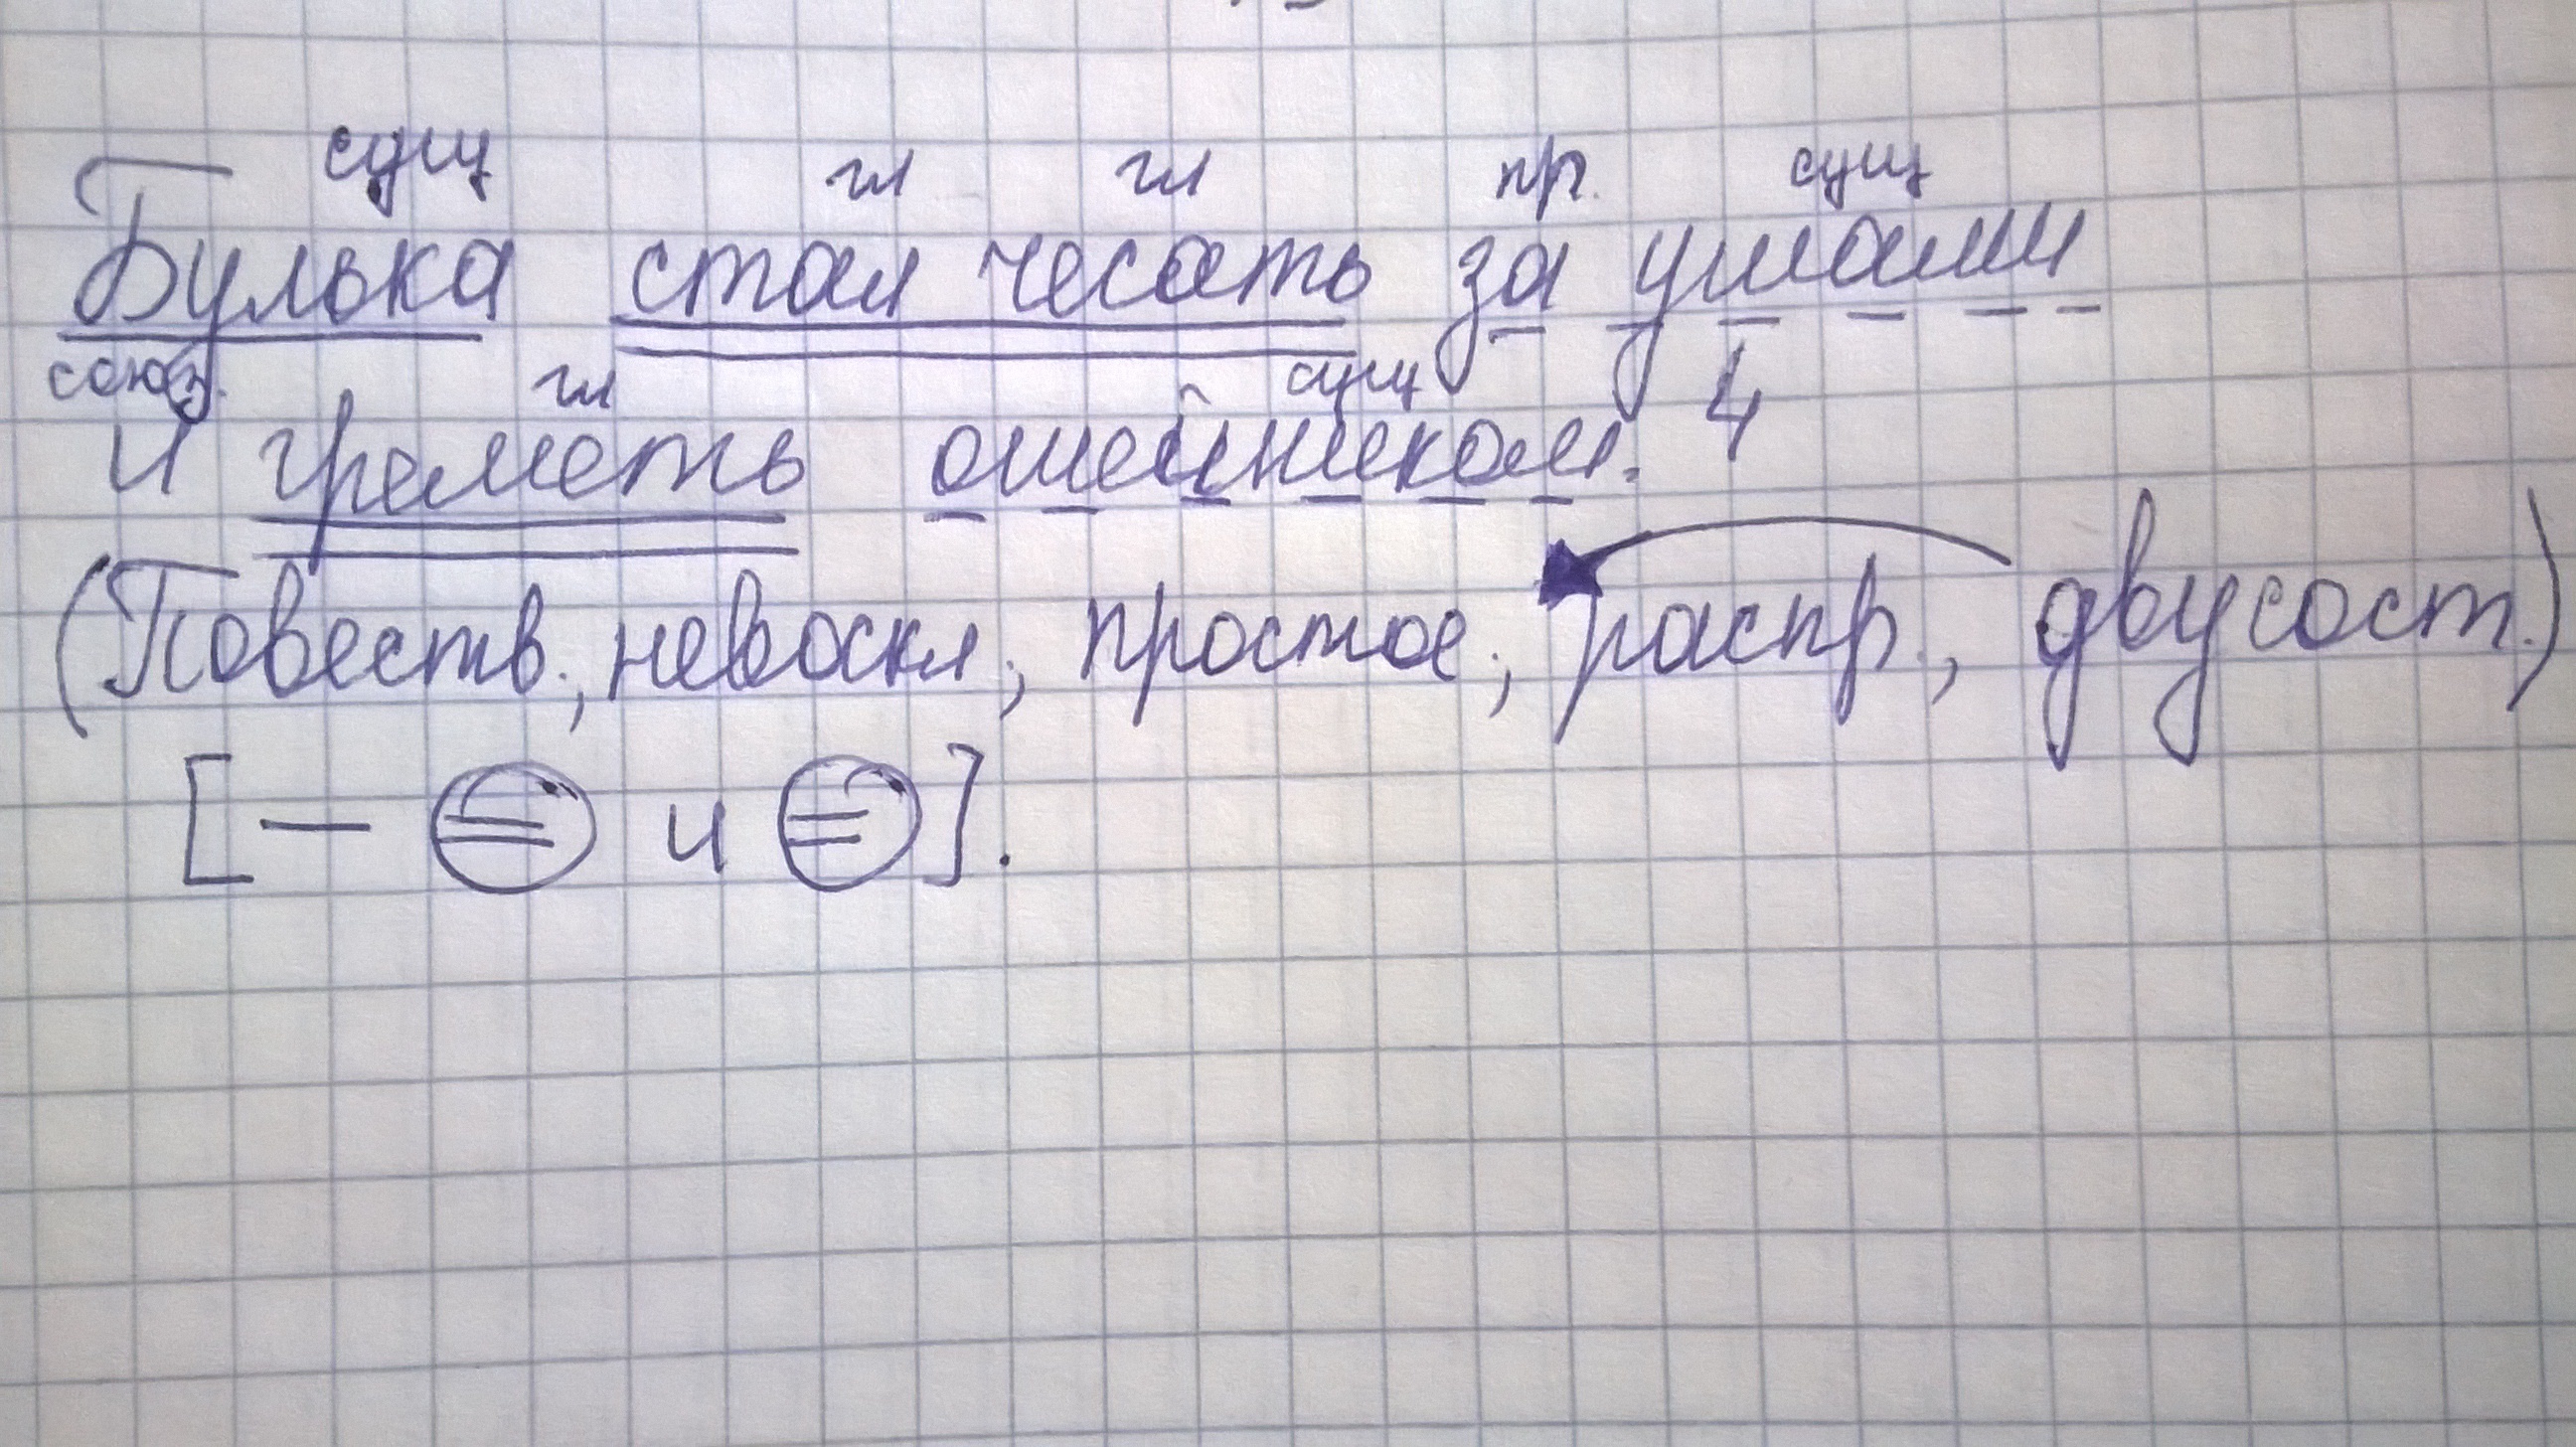 сущ гл гл пр. сущ
Булька стал чесать за ушами
союз. гл сущ 4
и греметь ошейником.
(Повеств., невоскл., простое, распр., двусост.)
[— = и =].